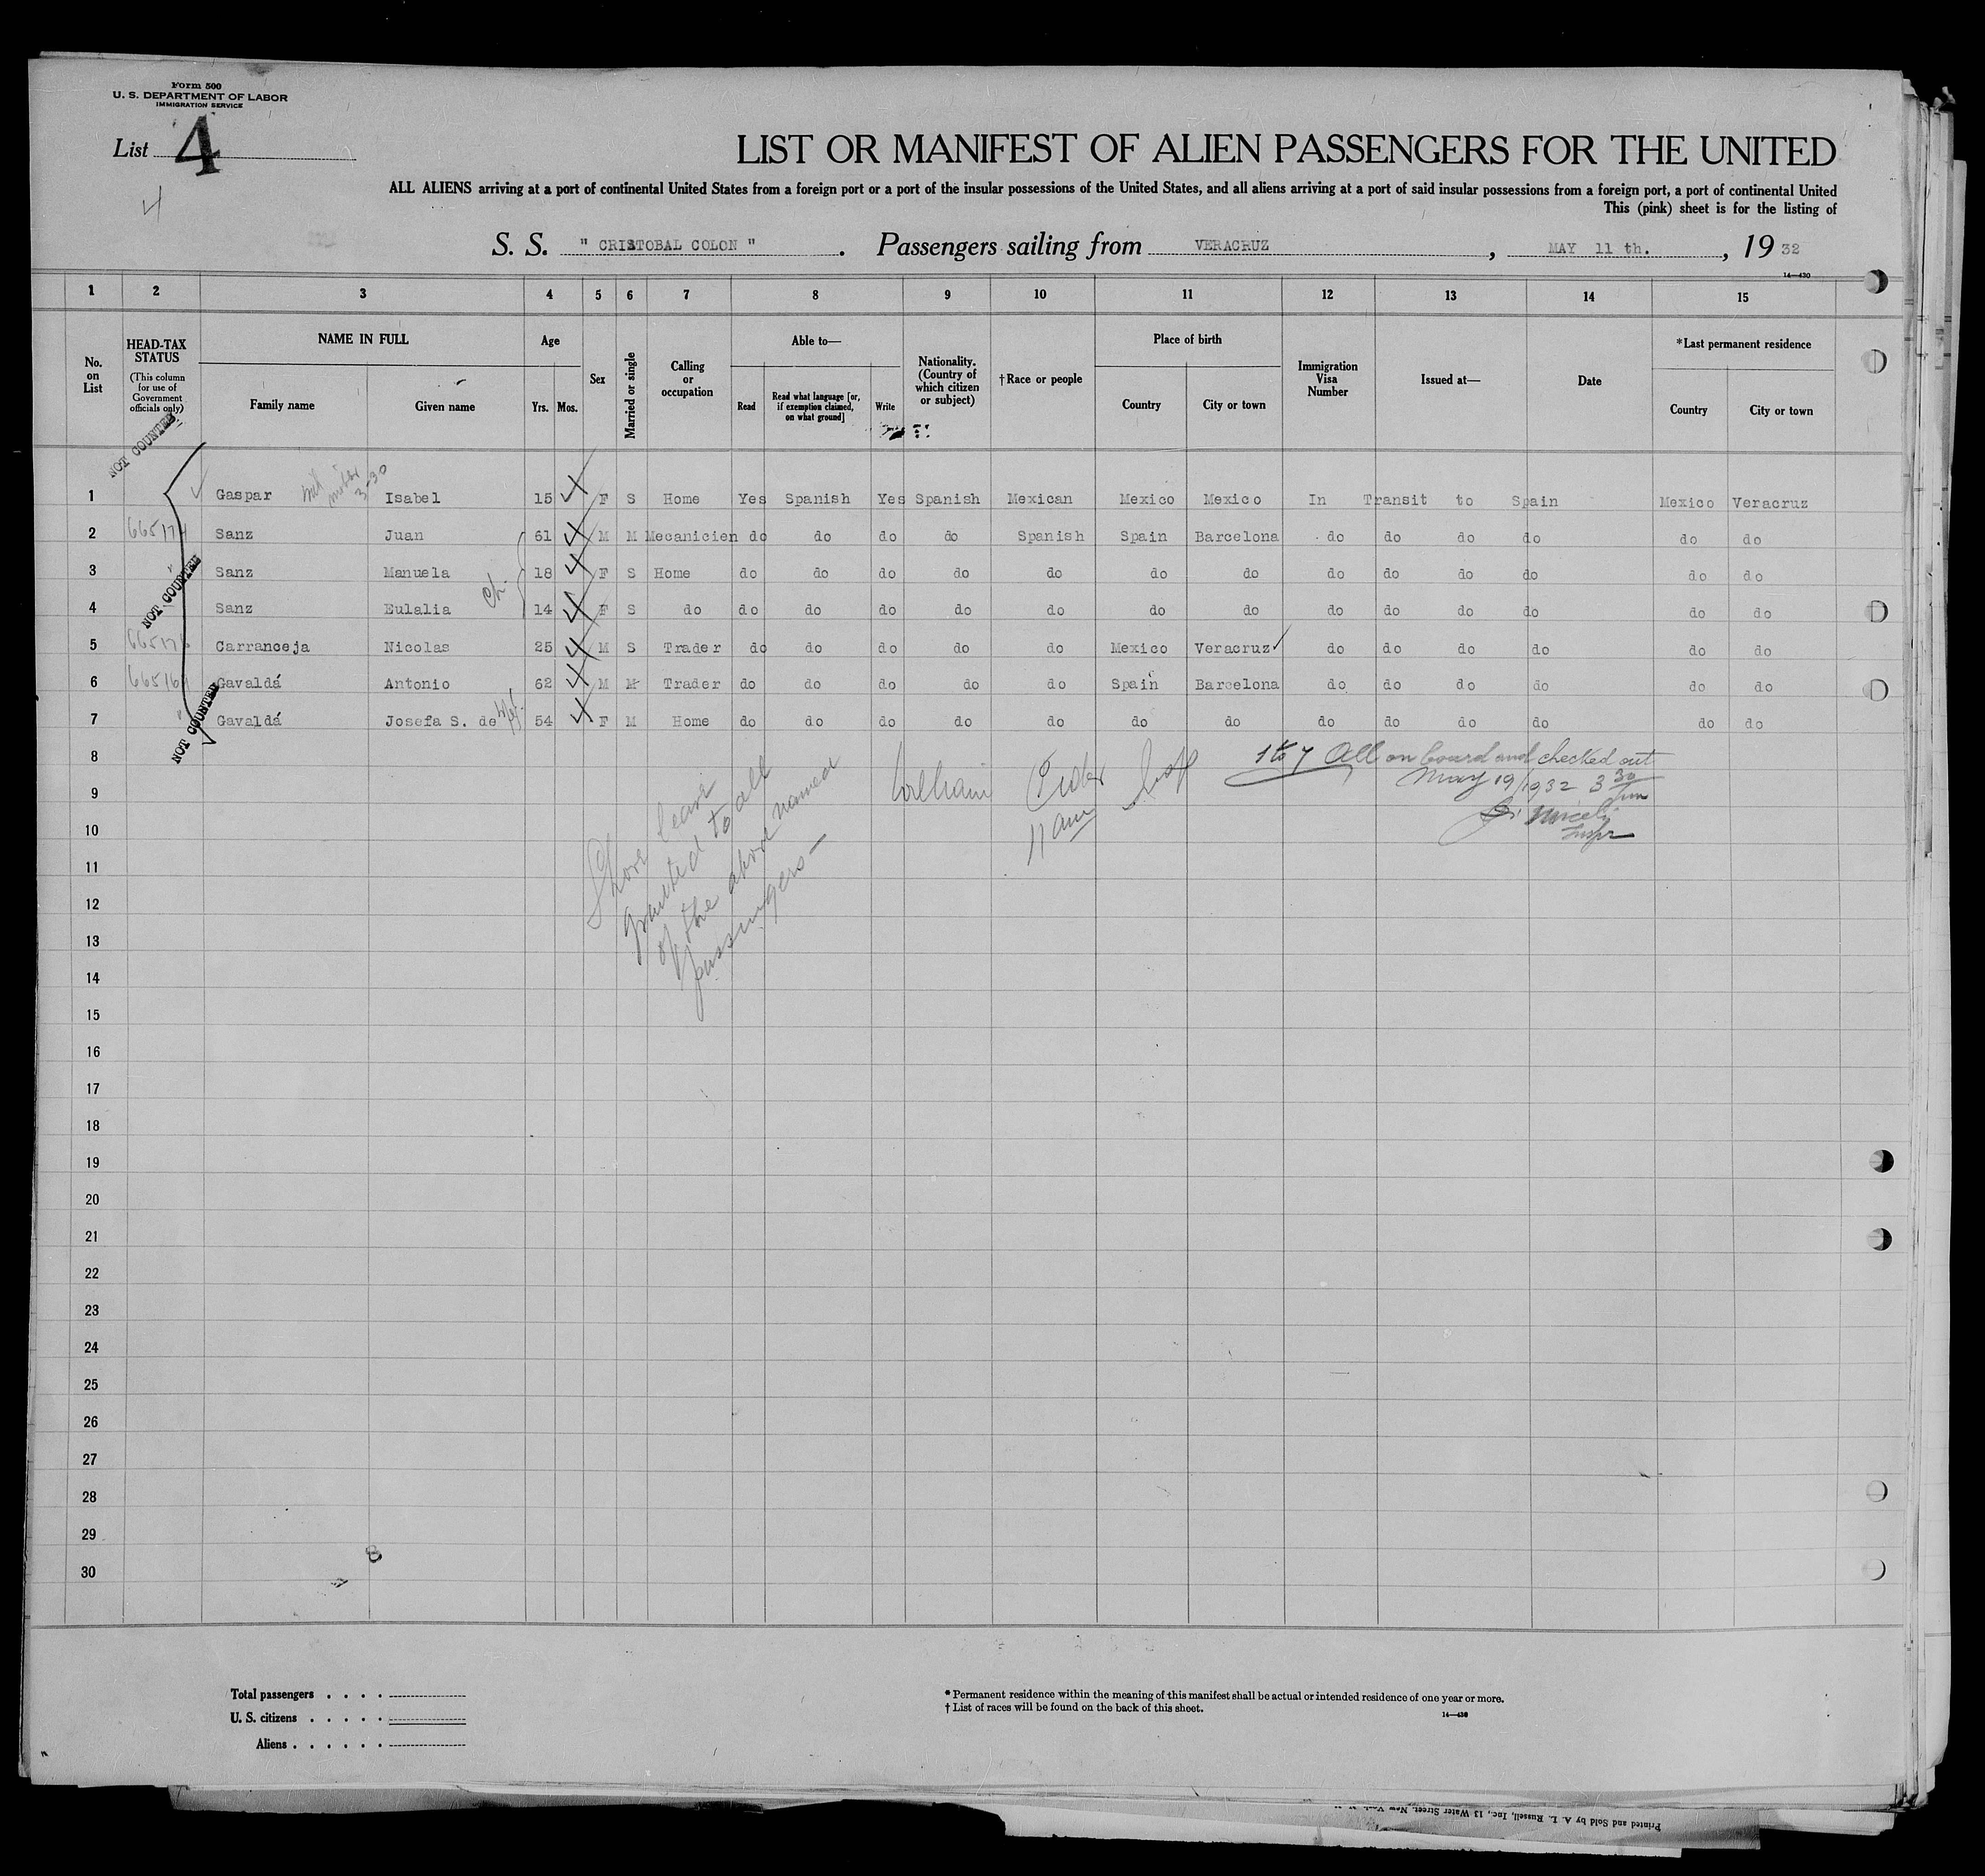 Form 500
U. S. DEPARTMENT OF LABOR
IMMIGRATION SERVICE
List 4
4
LIST OR MANIFEST OF ALIEN PASSENGERS FOR THE UNITED
ALL ALIENS arriving at a port of continental United States from a foreign port or a port of the insular possessions of the United States, and all aliens arriving at a port of said insular possessions from a foreign port, a port of continental United
This (pink) sheet is for the listing of
S. S. " CRISTOBAL COLON ". Passengers sailing from VERACRUZ, MAY 11 th., 19 32
14—430
1 2 3 4 5 6 7 8 9 10 11 12 13 14 15
No. on List
HEAD-TAX STATUS
(This column for use of Government officials only)
NAME IN FULL
Family name Given name
Age
Yrs. Mos.
Sex
Married or single
Calling or occupation
Able to—
Read
Read what language [or, if exemption claimed, on what ground]
Write
Nationality. (Country of which citizen or subject)
†Race or people
Place of birth
Country City or town
Immigration Visa Number
Issued at—
Date
*Last permanent residence
Country City or town
NOT COUNTED
1 Gaspar Isabel 15 F S Home Yes Spanish Yes Spanish Mexican Mexico Mexico In Transit to Spain Mexico Veracruz
2 Sanz Juan 61 M M Mecanicien do do do do Spanish Spain Barcelona do do do do do do
NOT COUNTED
3 Sanz Manuela 18 F S Home do do do do do do do do do do do do do
4 Sanz Eulalia 14 F S do do do do do do do do do do do do do do
5 Carranceja Nicolas 25 M S Trader do do do do do Mexico Veracruz do do do do do do
6 Gavaldá Antonio 62 M M Trader do do do do do Spain Barcelona do do do do do do
NOT COUNTED
7 Gavaldá Josefa S. de 54 F M Home do do do do do do do do do do do do do
8
9
10
11
12
13
14
15
16
17
18
19
20
21
22
23
24
25
26
27
28
29
30
Shore leave
granted to all
of the above named
passengers—
William
11 am
1 to 7 All on board and checked out
May 19/1932 3 30
Inspr
8
Total passengers . . . .
U. S. citizens . . . . .
Aliens . . . . . .
* Permanent residence within the meaning of this manifest shall be actual or intended residence of one year or more.
† List of races will be found on the back of this sheet.
14—430
Printed and Sold by A. L. Russell, Inc., 13 Water Street, New York